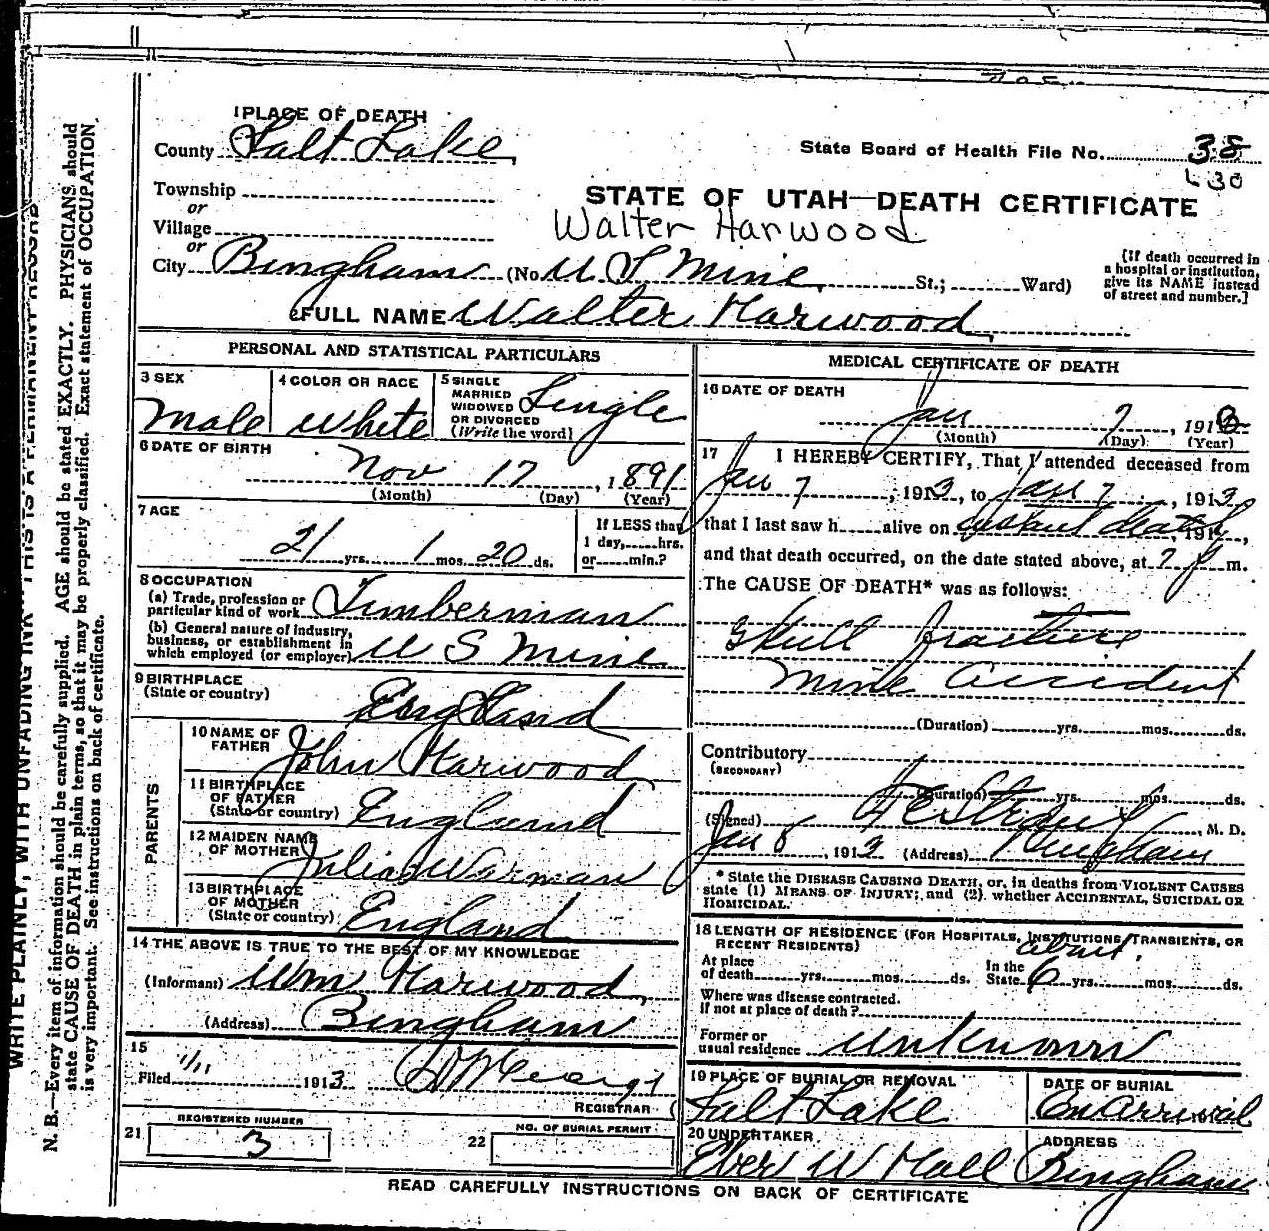 1 PLACE OF DEATH
County Salt Lake
State Board of Health File No. 38
30
Township
or
Village
or
City Bingham (No. U S Mine St.; Ward)
STATE OF UTAH—DEATH CERTIFICATE
Walter Harwood
[If death occurred in
a hospital or institution,
give its NAME instead
of street and number.]
FULL NAME Walter Harwood
PERSONAL AND STATISTICAL PARTICULARS
3 SEX
Male
4 COLOR OR RACE
White
5 SINGLE
MARRIED
WIDOWED
OR DIVORCED
(Write the word)
Single
6 DATE OF BIRTH
Nov 17, 1891
(Month) (Day) (Year)
7 AGE
21 yrs. 1 mos. 20 ds.
If LESS than
1 day, hrs.
or min.?
8 OCCUPATION
(a) Trade, profession or
particular kind of work Timberman
(b) General nature of industry,
business, or establishment in
which employed (or employer) U S Mine
9 BIRTHPLACE
(State or country) England
PARENTS
10 NAME OF
FATHER John Harwood
11 BIRTHPLACE
OF FATHER
(State or country) England
12 MAIDEN NAME
OF MOTHER Julia Warman
13 BIRTHPLACE
OF MOTHER
(State or country) England
14 THE ABOVE IS TRUE TO THE BEST OF MY KNOWLEDGE
(Informant) Wm Harwood
(Address) Bingham
15
Filed 1/11 1913
REGISTRAR
21 REGISTERED NUMBER
3
22 NO. OF BURIAL PERMIT
MEDICAL CERTIFICATE OF DEATH
16 DATE OF DEATH
Jan 7, 1913
(Month) (Day) (Year)
17 I HEREBY CERTIFY, That I attended deceased from
Jan 7, 1913, to Jan 7, 1913
that I last saw h alive on instant death, 191,
and that death occurred, on the date stated above, at 7 p m.
The CAUSE OF DEATH* was as follows:
Skull fracture
Mine accident
(Duration) yrs. mos. ds.
Contributory
(SECONDARY)
(Duration) yrs. mos. ds.
(Signed) , M. D.
Jan 8, 1913 (Address) Bingham
* State the DISEASE CAUSING DEATH, or, in deaths from VIOLENT CAUSES
state (1) MEANS OF INJURY; and (2) whether ACCIDENTAL, SUICIDAL OR
HOMICIDAL.
18 LENGTH OF RESIDENCE (FOR HOSPITALS, INSTITUTIONS, TRANSIENTS, OR
RECENT RESIDENTS)
about
At place
of death yrs. mos. ds.
In the
State 6 yrs. mos. ds.
Where was disease contracted.
if not at place of death?
Former or
usual residence unknown
19 PLACE OF BURIAL OR REMOVAL
Salt Lake
DATE OF BURIAL
On Arrival, 191
20 UNDERTAKER
Eber W Hall
ADDRESS
Bingham
READ CAREFULLY INSTRUCTIONS ON BACK OF CERTIFICATE
WRITE PLAINLY, WITH UNFADING INK—THIS IS A PERMANENT RECORD
N. B.—Every item of information should be carefully supplied. AGE should be stated EXACTLY. PHYSICIANS should
state CAUSE OF DEATH in plain terms, so that it may be properly classified. Exact statement of OCCUPATION
is very important. See instructions on back of certificate.